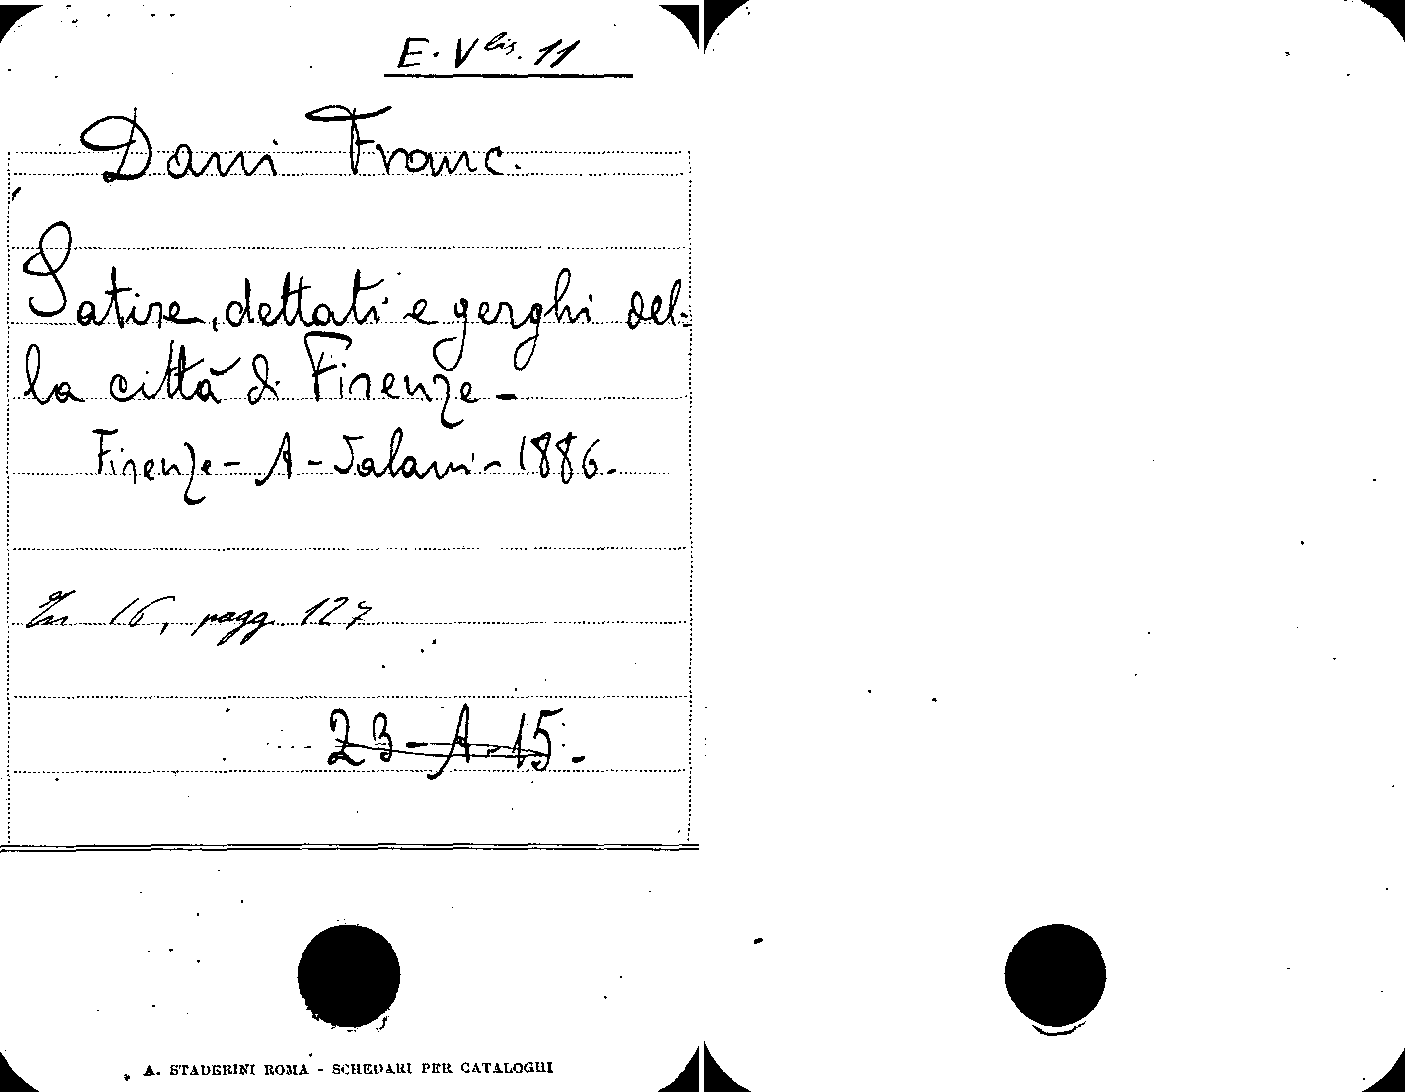 E. V bis. 11
Dani Franc.
Satire, dettati e gerghi del-
la città di Firenze -
Firenze - A - Salani - 1886.
In 16, pagg. 127
23 - A - 15.
A. STADERINI ROMA - SCHEDARI PER CATALOGHI